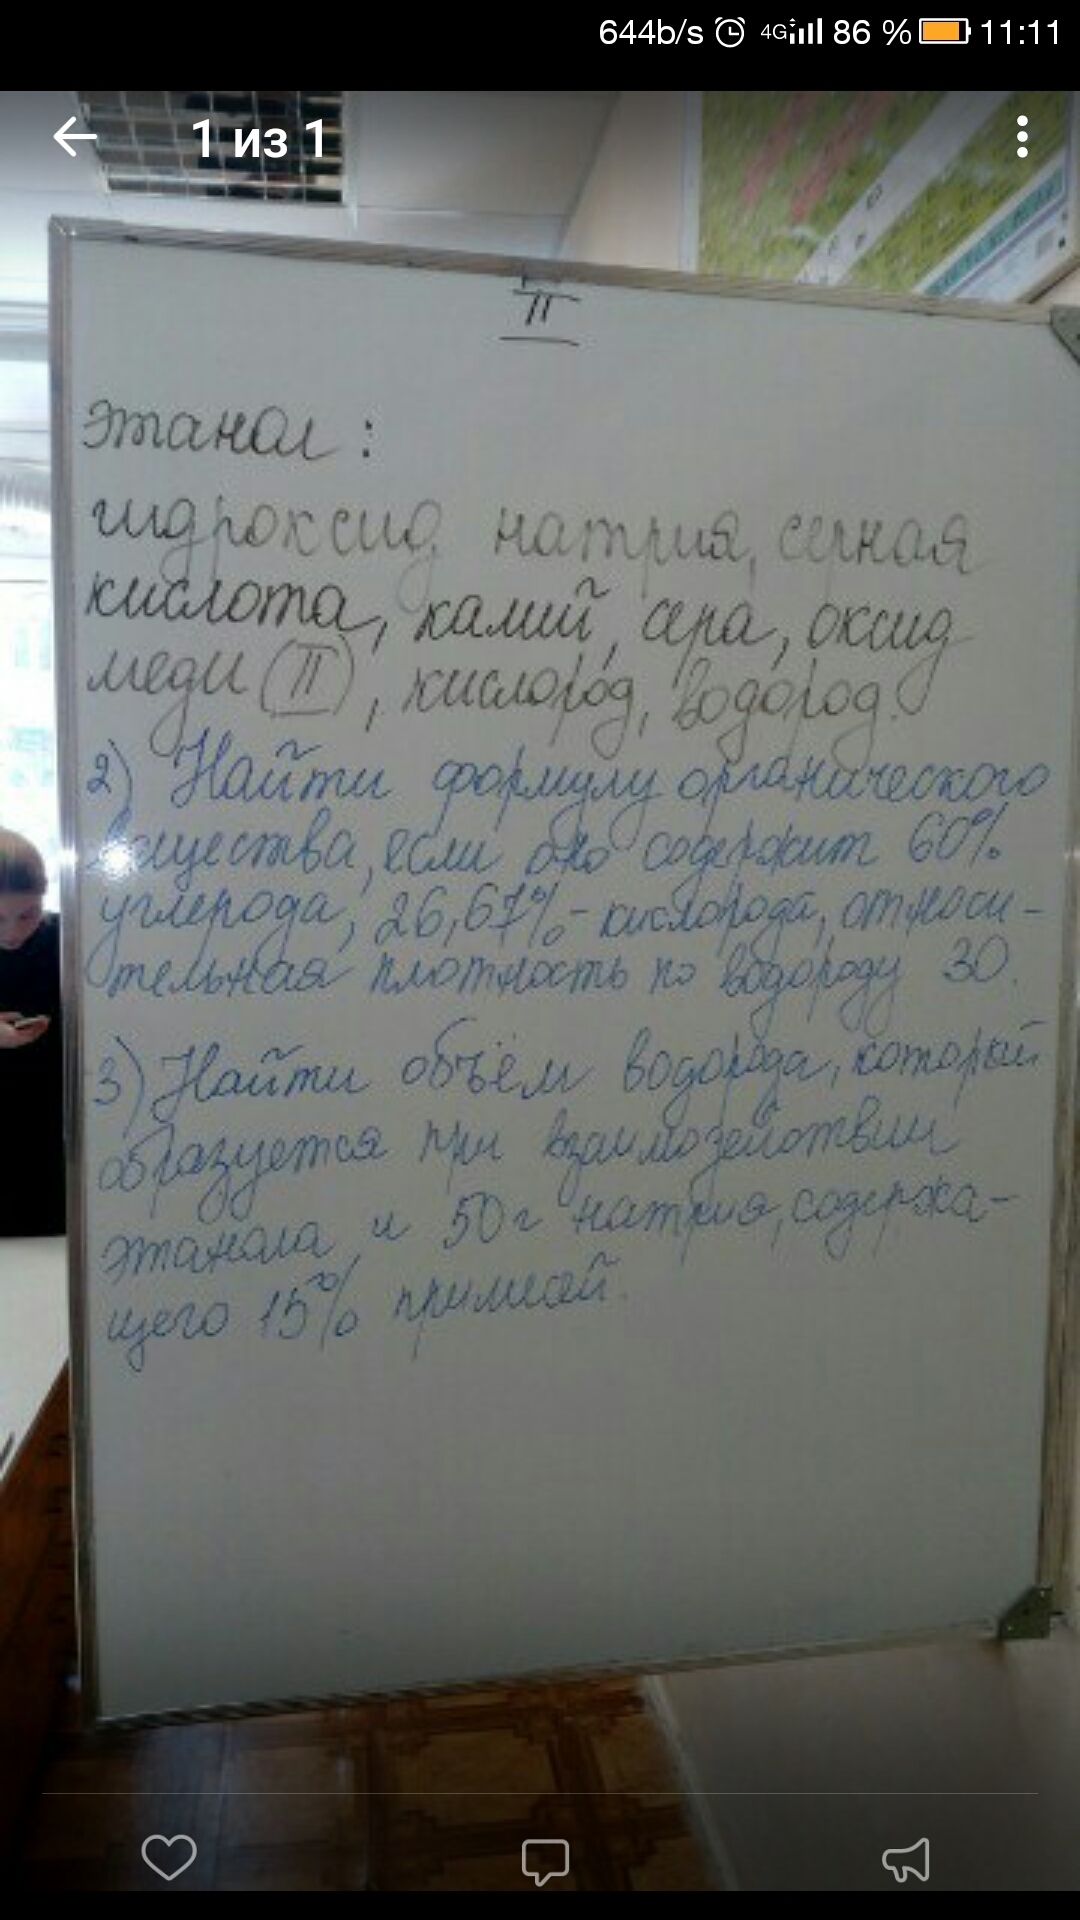 644b/s 4G 86 % 11:11
1 из 1
II
этанол :
гидроксид натрия, серная
кислота, калий, сера, оксид
меди (II), кислород, водород.
2) Найти формулу органического
вещества, если оно содержит 60%
углерода, 26,67% - кислорода, относи-
тельная плотность по водороду 30.
3) Найти объём водорода, который
образуется при взаимодействии
этанола и 50г натрия, содержа-
щего 15% примесей.